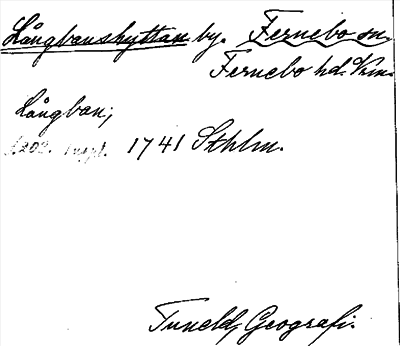 Långbanshyttan by. Fernebo sn.
Fernebo hd. Vrm.
Långban;
1741 Sthlm.
Tuneld, Geografi.